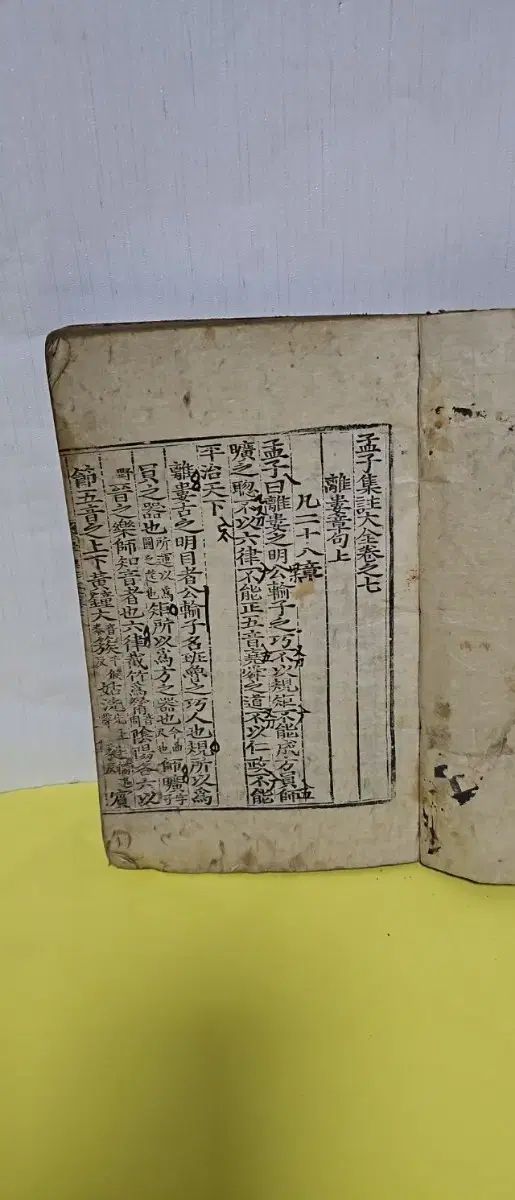 孟子集註大全卷之七
離婁章句上
凡二十八章
孟子曰離婁之明公輸子之巧不以規矩不能成方員師
曠之聰不以六律不能正五音堯舜之道不以仁政不能
平治天下
離婁古之明目者公輸子名班魯之巧人也規所以爲
員之器也 矩所以爲方之器也 師曠字
野晉之樂師知音者也六律截竹爲筩陰陽各六以
節五音之上下黃鍾大簇姑洗蕤賓